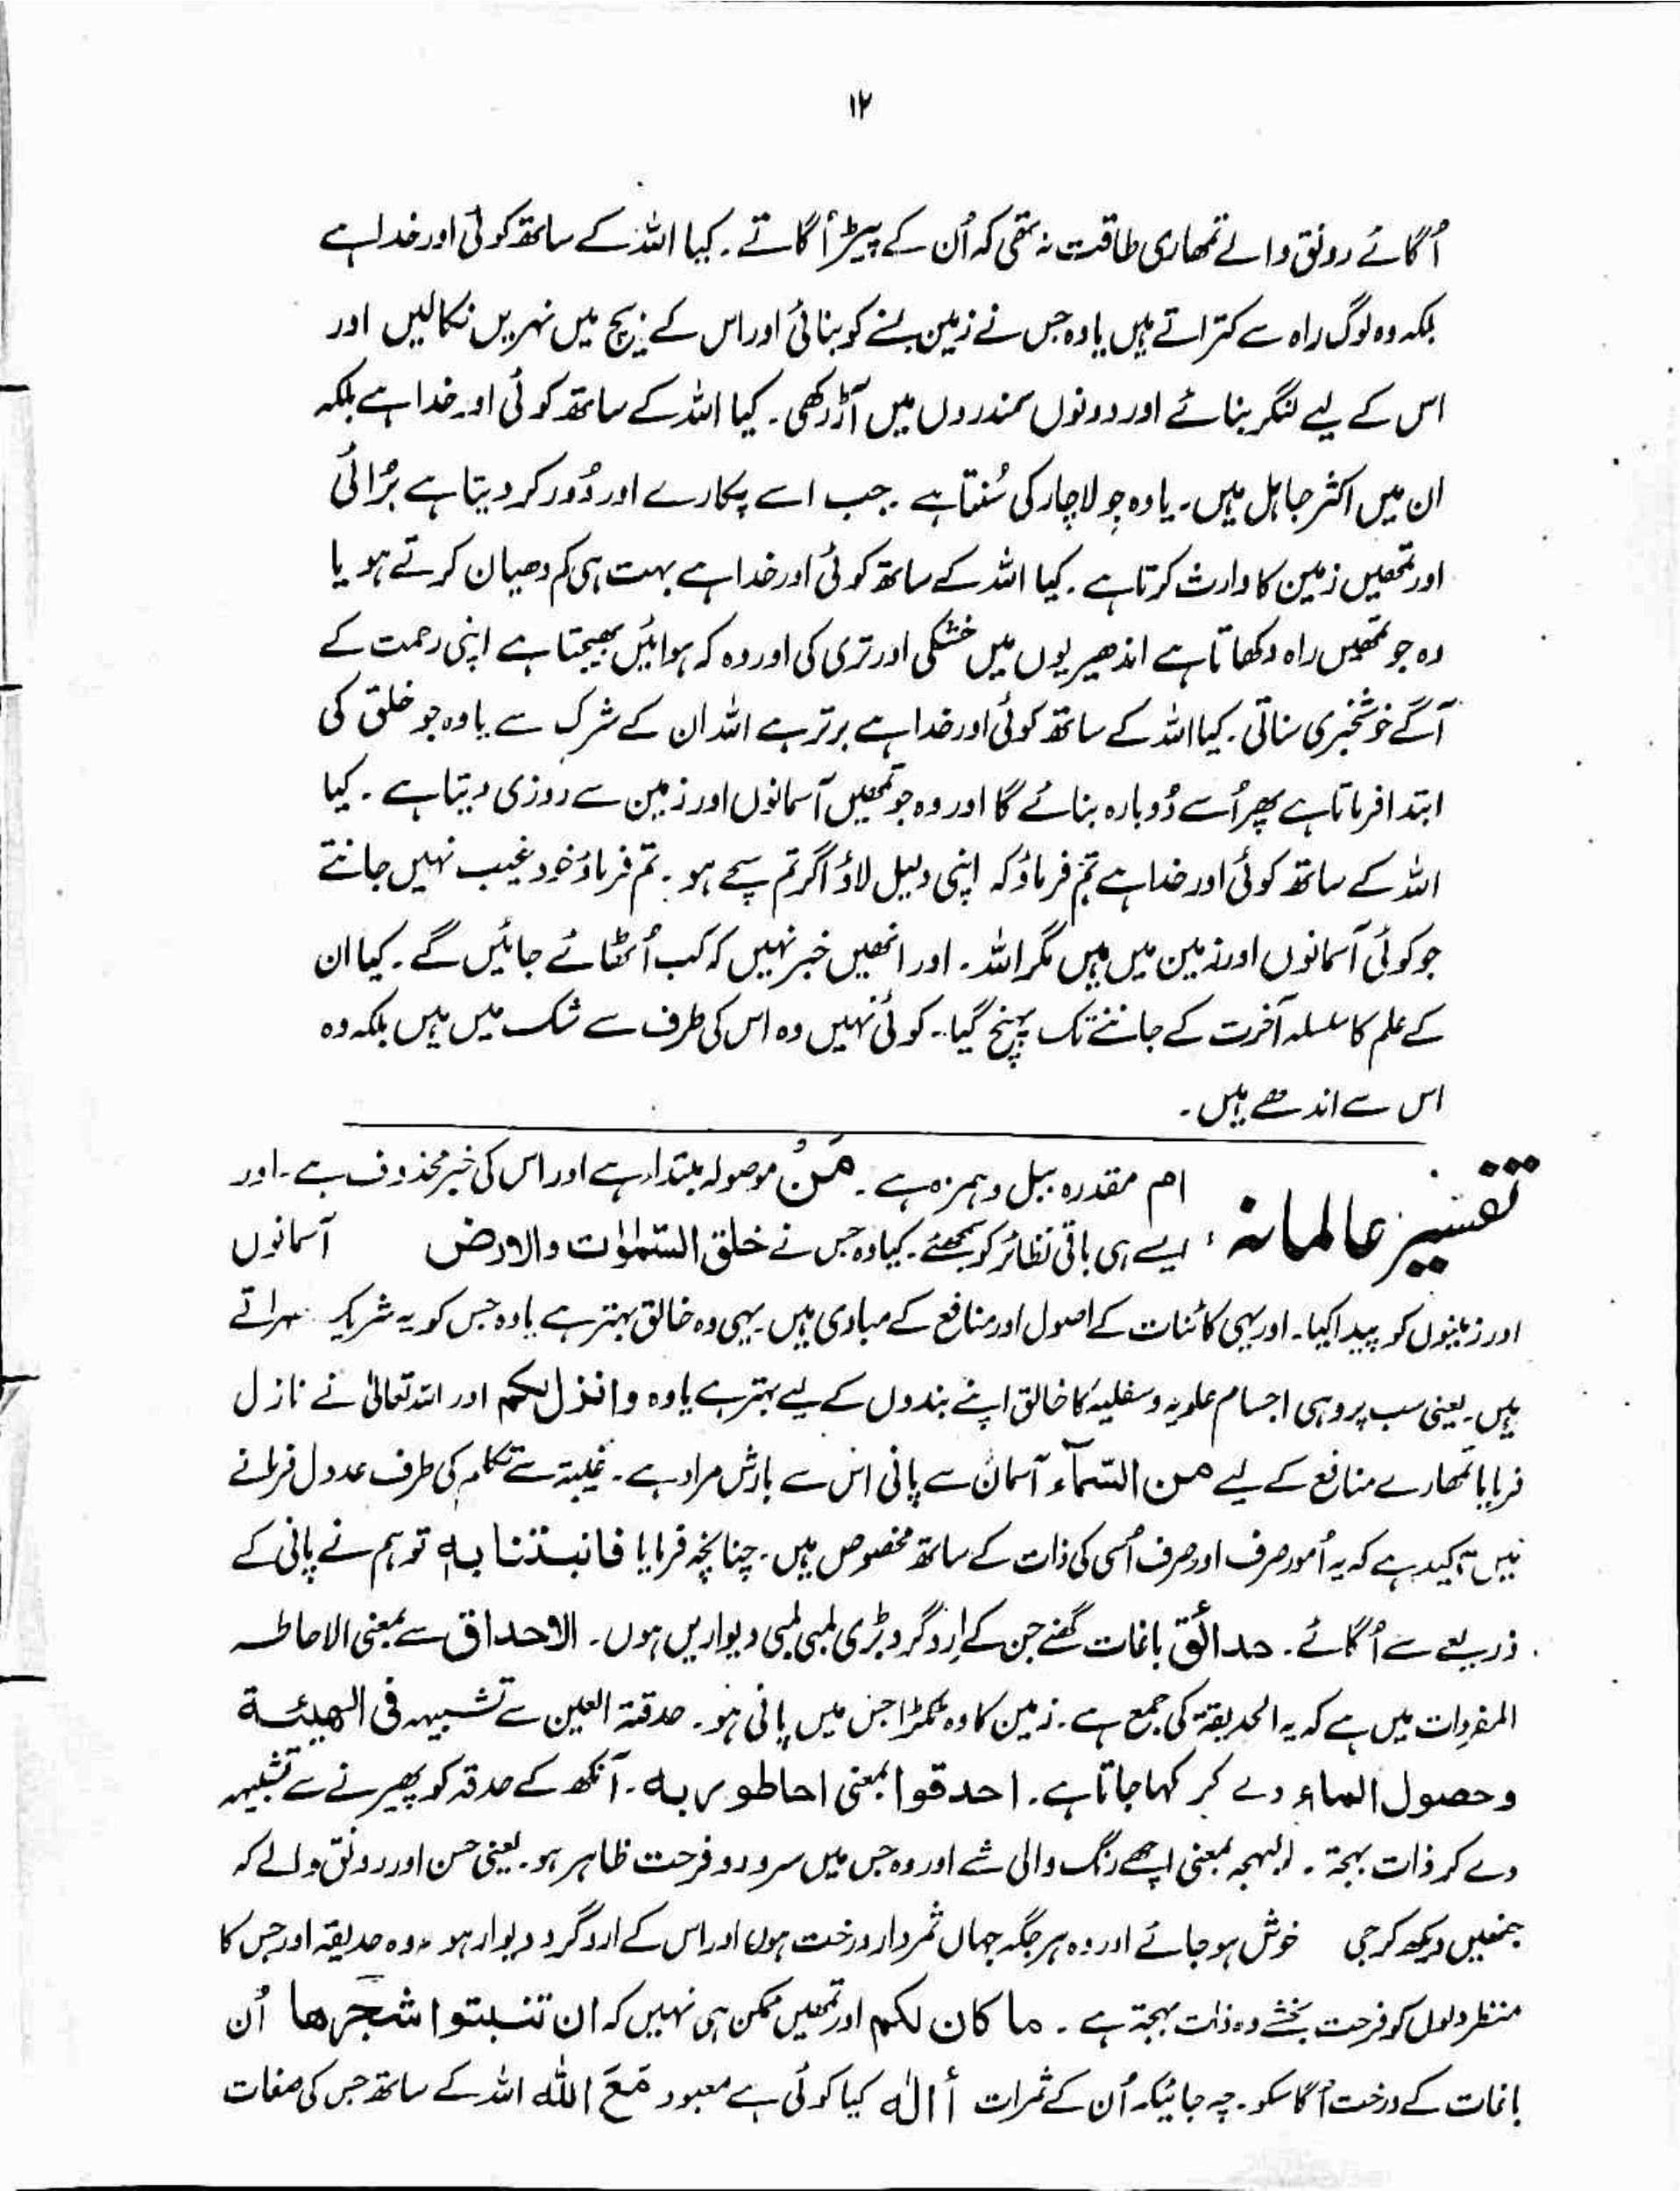 ۱۲
اُگائے رونق والے تمھاری طاقت نہ تھی کہ اُن کے پیڑ اُگاتے۔ کیا اللہ کے ساتھ کوئی اور خدا ہے
بلکہ وہ لوگ راہ سے کتراتے ہیں یا وہ جس نے زمین بسنے کو بنائی اور اس کے بیچ میں نہریں نکالیں اور
اس کے لیے لنگر بنائے اور دونوں سمندروں میں آڑ رکھی۔ کیا اللہ کے ساتھ کوئی اور خدا ہے بلکہ
ان میں اکثر جاہل ہیں۔ یا وہ جو لاچار کی سُنتا ہے۔ جب اسے پکارے اور دُور کر دیتا ہے بُرائی
اور تمھیں زمین کا وارث کرتا ہے۔ کیا اللہ کے ساتھ کوئی اور خدا ہے بہت ہی کم دھیان کرتے ہو یا
وہ جو تمھیں راہ دکھاتا ہے اندھیریوں میں خشکی اور تری کی اور وہ کہ ہوائیں بھیجتا ہے اپنی رحمت کے
آگے خوشخبری سناتی۔ کیا اللہ کے ساتھ کوئی اور خدا ہے برتر ہے اللہ ان کے شرک سے یا وہ جو خلق کی
ابتدا فرماتا ہے پھر اُسے دُوبارہ بنائے گا اور وہ جو تمھیں آسمانوں اور زمین سے روزی دیتا ہے۔ کیا
اللہ کے ساتھ کوئی اور خدا ہے تم فرماؤ کہ اپنی دلیل لاؤ اگر تم سچے ہو۔ تم فرماؤ خود غیب نہیں جانتے
جو کوئی آسمانوں اور زمین میں ہیں مگر اللہ۔ اور انھیں خبر نہیں کہ کب اُٹھائے جائیں گے۔ کیا ان
کے علم کا سلسلہ آخرت کے جاننے تک پہنچ گیا۔ کوئی نہیں وہ اس کی طرف سے شک میں ہیں بلکہ وہ
اس سے اندھے ہیں۔
تفسیر عالمانہ، ام مقدرہ ببل وہمزہ ہے۔ مَنْ موصولہ مبتداء ہے اور اس کی خبر محذوف ہے۔ اور
ایسے ہی باقی نظائر کو سمجھئے۔ کیا وہ جس نے خلق السّمٰوٰت والارض آسمانوں
اور زمینوں کو پیدا کیا۔ اور یہی کائنات کے اصول اور منافع کے مبادی ہیں۔ یہی وہ خالق بہتر ہے یا وہ جس کو یہ شریک ٹھہراتے
ہیں۔ یعنی سب پر وہی اجسام علویہ وسفلیہ کا خالق اپنے بندوں کے لیے بہتر ہے یا وہ وانزل لکم اور اللہ تعالیٰ نے نازل
فرمایا تمھارے منافع کے لیے من السّمآء آسمان سے پانی اس سے بارش مراد ہے۔ غیبۃ سے تکلم کی طرف عدول فرمانے
میں تاکید ہے کہ یہ اُمور صرف اور صرف اُسی کی ذات کے ساتھ مخصوص ہیں۔ چنانچہ فرمایا فانبتنا بہ تو ہم نے پانی کے
ذریعے سے اُگائے۔ حدائق باغات گھنے جن کے اِردگرد بڑی لمبی لمبی دیواریں ہوں۔ الاحداق سے بمعنی الاحاطہ
المفردات میں ہے کہ یہ الحدیقۃ کی جمع ہے۔ زمین کا وہ ٹکڑا جس میں پانی ہو۔ حدقۃ العین سے تشبیہ فی الھیئۃ
وحصول الماء دے کر کہا جاتا ہے۔ احدقوا بمعنی احاطوا بہ۔ آنکھ کے حدقہ کو پھیرنے سے تشبیہ
دے کر ذات بہجۃ۔ البہجہ بمعنی اچھے رنگ والی شے اور وہ جس میں سرور و فرحت ظاہر ہو۔ یعنی حسن اور رونق والے کہ
جنھیں دیکھ کر جی خوش ہو جائے اور وہ ہر جگہ جہاں ثمردار درخت ہوں اور اس کے اردگرد دیوار ہو وہ حدیقہ اور جس کا
منظر دلوں کو فرحت بخشے وہ ذات بہجۃ ہے۔ ما کان لکم اور تمھیں ممکن ہی نہیں کہ ان تنبتوا شجرھا اُن
باغات کے درخت اُگا سکو۔ چہ جائیکہ اُن کے ثمرات أالٰہ کیا کوئی ہے معبود مَعَ اللّٰہ اللہ کے ساتھ جس کی صفات